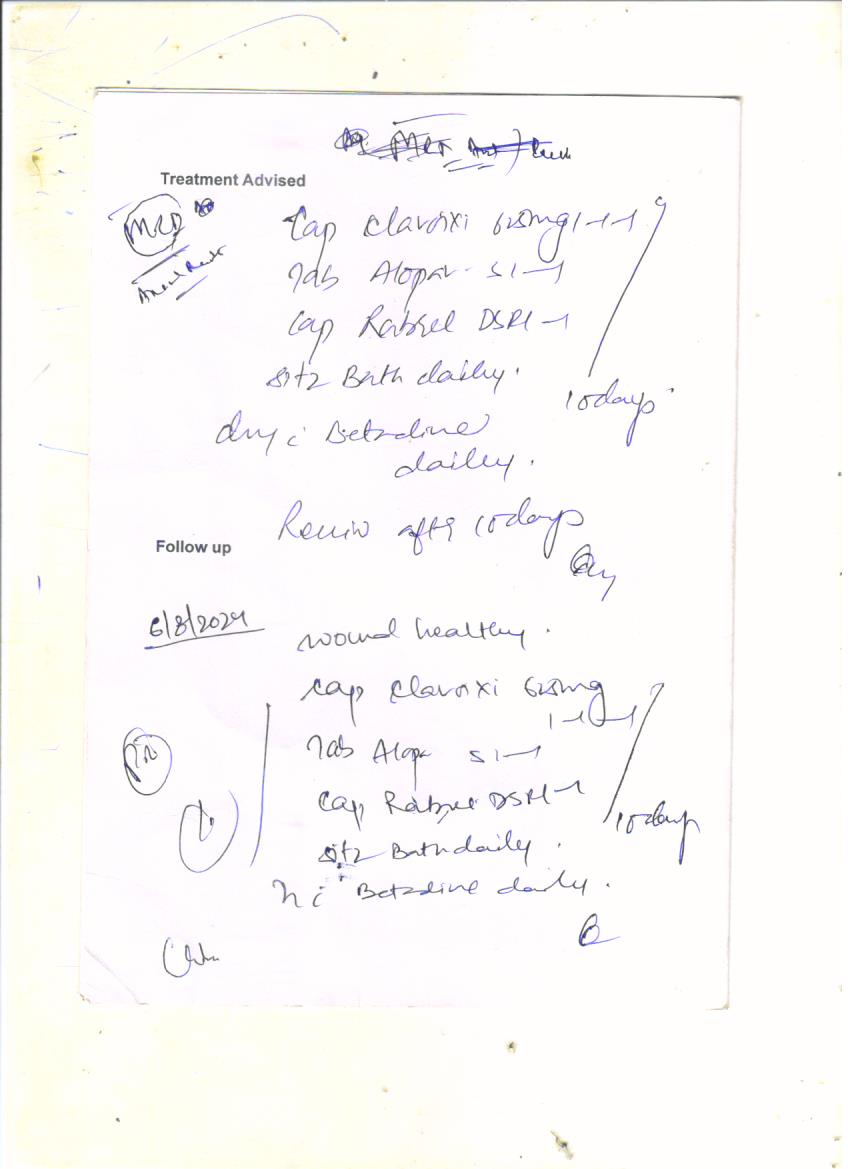 Treatment Advised
MRD
Cap Clavoxi 625mg 1-1-1
Tab Alopar - S 1-1
Cap Rabzel DSR 1-1
sitz Bath daily.
10 days
dry c Betadine
daily.
Review after 10 days
Follow up
6/8/2024
wound healthy.
Cap Clavoxi 625mg
1-1-1
Tab Alopar S 1-1
Cap Rabzel DSR 1-1
sitz Bath daily.
10 days
c Betadine daily.